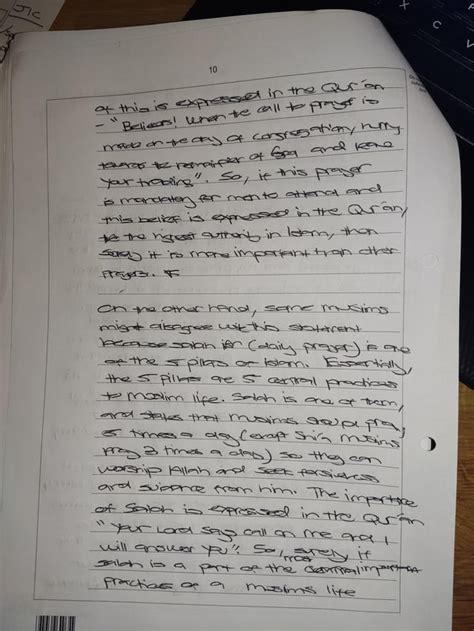 10
of this is expressed in the Qur'an
- "Believers! When the call to prayer is
made on the day of congregation, hurry
towards the remembrance of God and leave
your trading". So, if this prayer
is mandatory for men to attend and
this belief is expressed in the Qur'an,
the highest authority in Islam, then
surely it is more important than other
prayers.
On the other hand, some muslims
might disagree with this statement
because salah (daily prayer) is one
of the 5 pillars of Islam. Essentially,
the 5 pillars are 5 central practices
to muslim life. Salah is one of them,
and states that muslims should pray
5 times a day (except Shi'a muslims
pray 3 times a day) so they can
worship Allah and seek forgiveness
and guidance from him. The importance
of Salah is expressed in the Qur'an
"Your Lord says call on me and I
will answer you". So, surely if
salah is a part of the most important
practices of a muslim's life